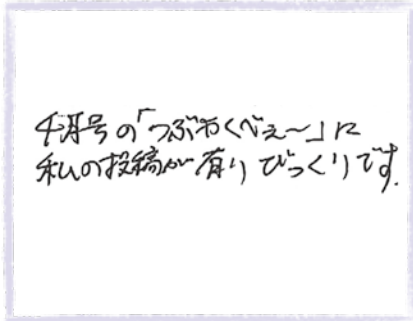 4月号の「つぶやくべぇ～」に
私の投稿が有りびっくりです.